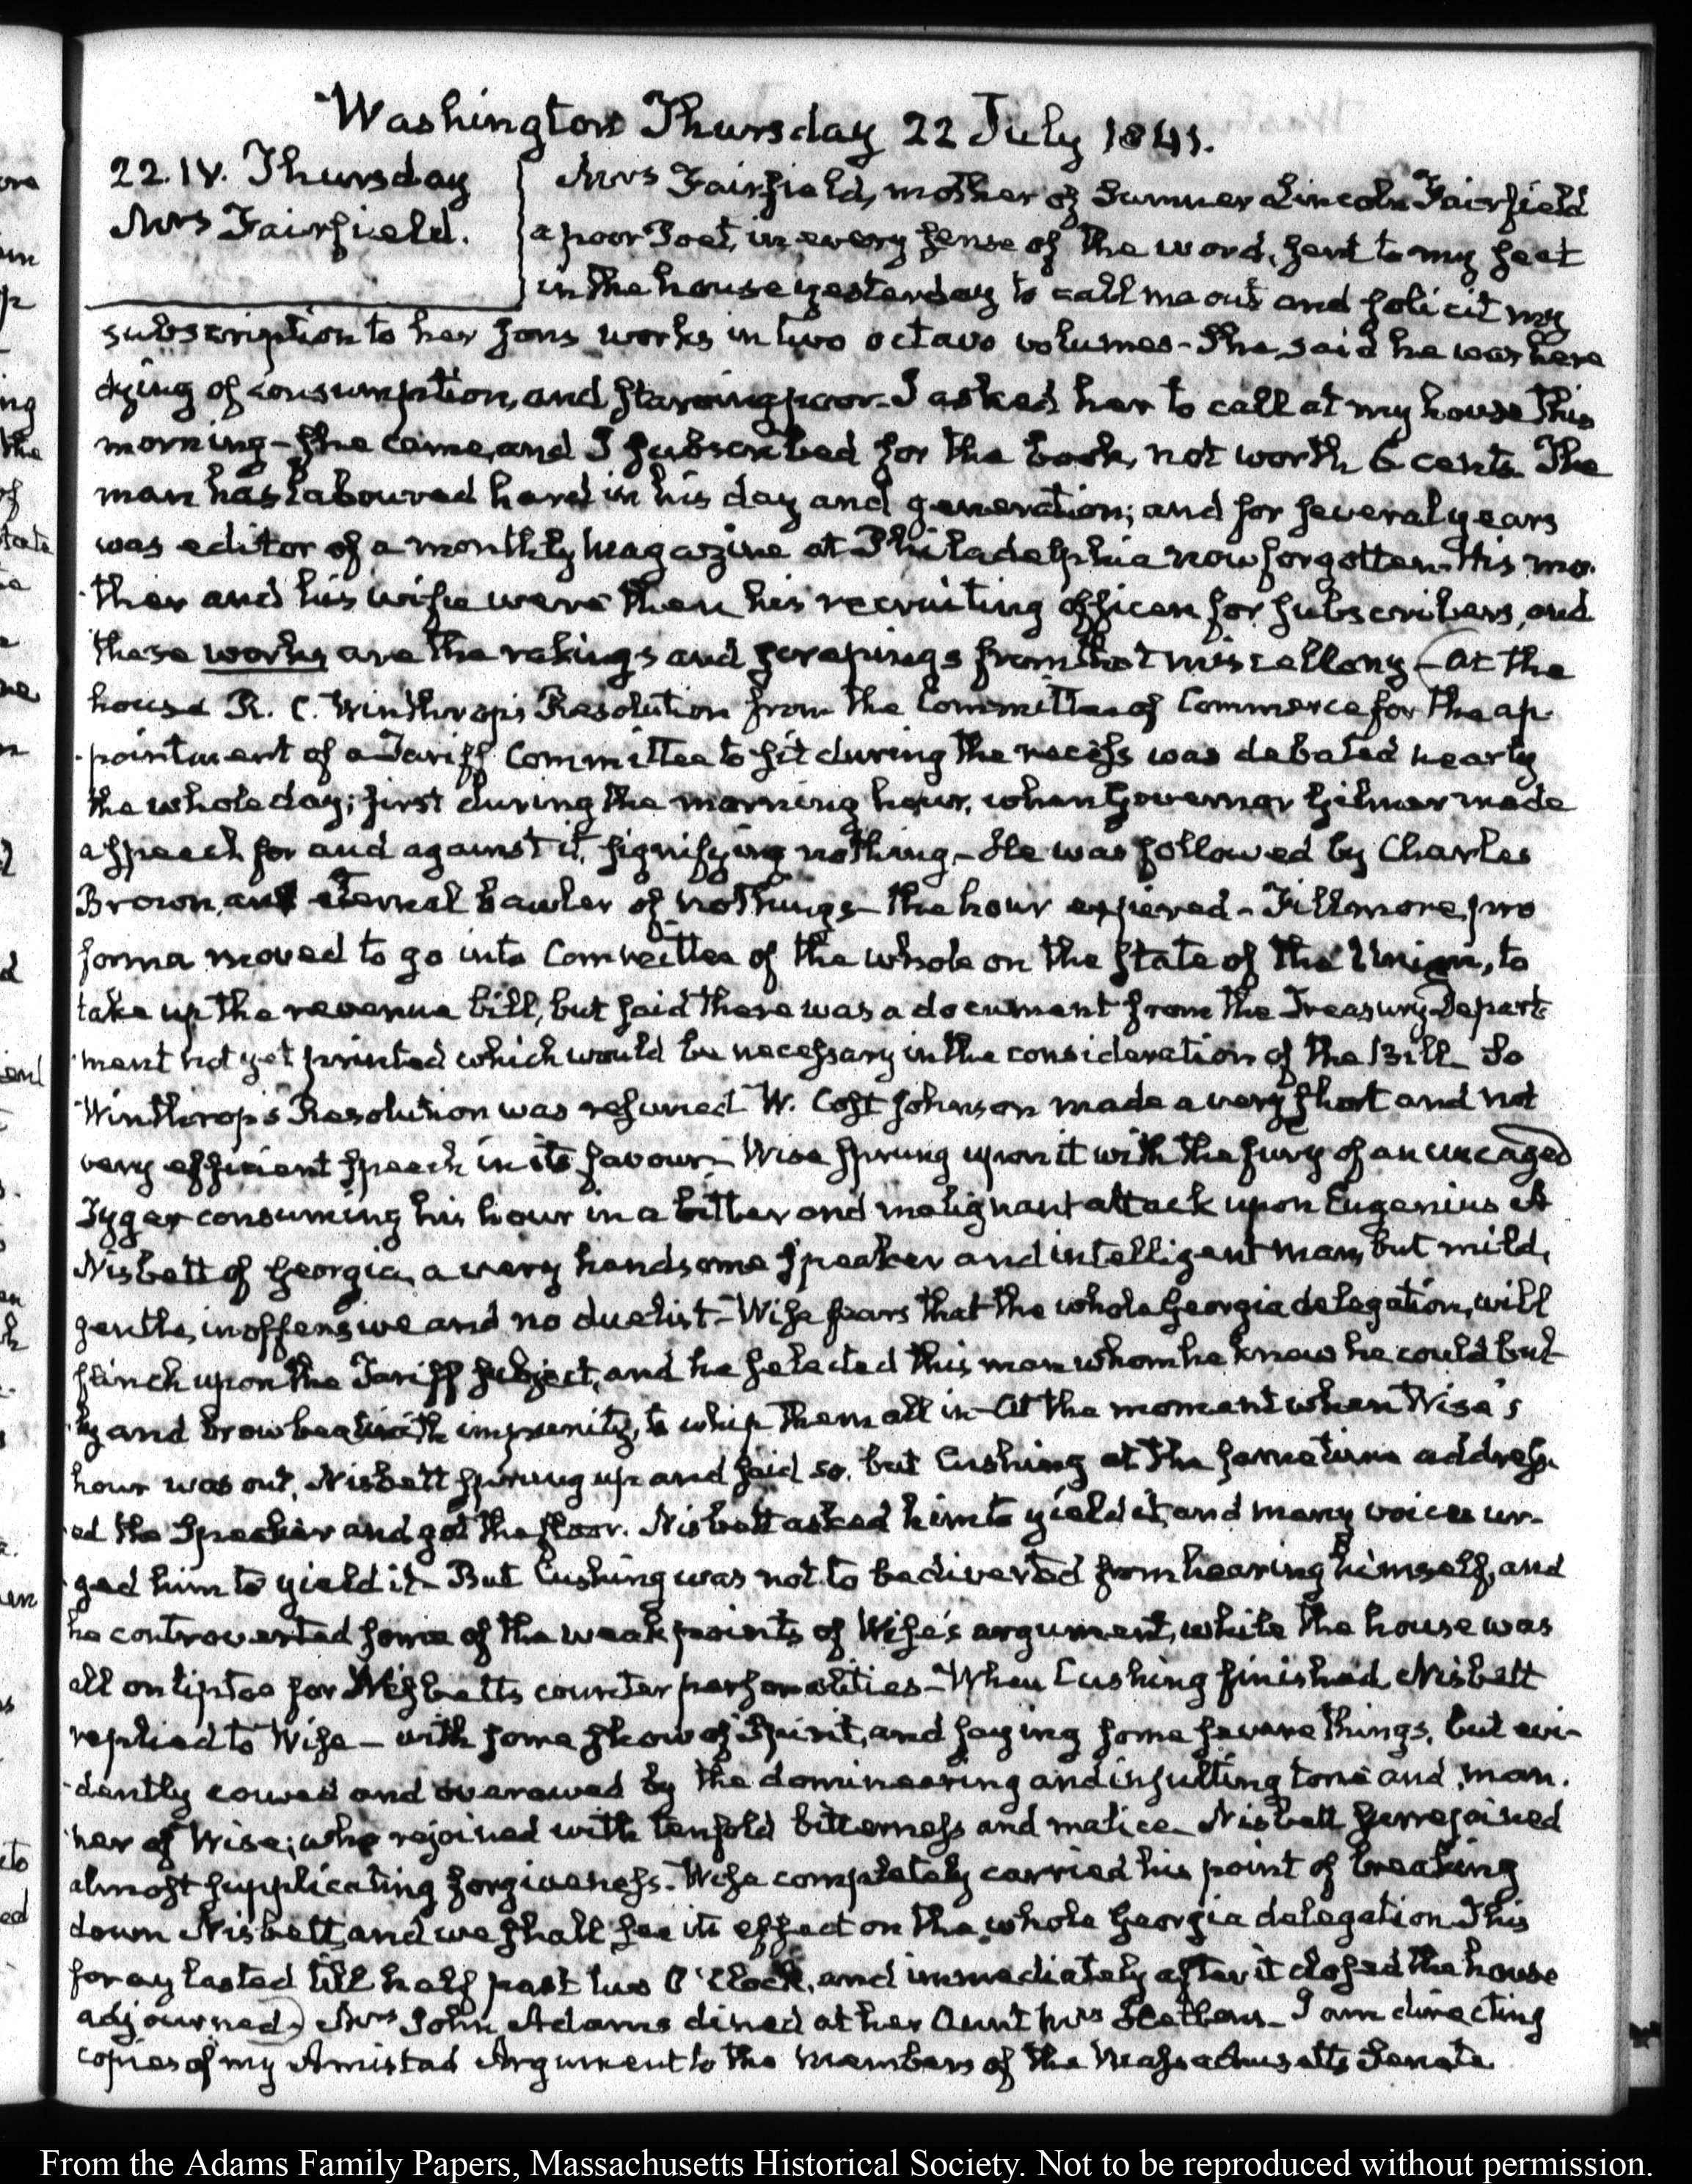 Washington Thursday 22 July 1841.
22. IV. Thursday
Mrs Fairfield.
Mrs Fairfield, mother of Sumner Lincoln Fairfield
a poor Poet, in every sense of the word, sent to my seat
in the house yesterday to call me out and solicit my
subscription to her sons works in two octavo volumes - She said he was here
dying of consumption, and starving poor - I asked her to call at my house this
morning - She came, and I subscribed for the book, not worth 6 cents. The
man has laboured hard in his day and generation; and for several years
was editor of a monthly Magazine at Philadelphia now forgotten - His mo-
-ther and his wife were then his recruiting officers for subscribers, and
these works are the rakings and scrapings from that miscellany - At the
house R. C. Winthrop's Resolution from the Committee of Commerce for the ap-
-pointment of a Tariff Committee to sit during the recess was debated nearly
the whole day; first during the morning hour, when Governor Gilmer made
a speech for and against it, signifying nothing - He was followed by Charles
Brown, an eternal bawler of nothings - the hour expired - Fillmore, pro
forma moved to go into Committee of the whole on the State of the Union, to
take up the revenue bill, but said there was a document from the Treasury Depart-
-ment not yet printed which would be necessary in the consideration of the Bill - So
Winthrop's Resolution was resumed W. Cost Johnson made a very short and not
very efficient speech in its favour - Wise sprung upon it with the fury of an uncaged
Tyger consuming his hour in a bitter and malignant attack upon Eugenius A
Nisbett of Georgia, a very handsome Speaker and intelligent man, but mild,
gentle, inoffensive and no duelist - Wise fears that the whole Georgia delegation, will
flinch upon the Tariff subject, and he selected this man whom he knew he could bul-
-ly and browbeat with impunity, to whip them all in - At the moment when Wise's
hour was out, Nisbett sprung up and said so, but Cushing at the same time address-
-ed the Speaker and got the floor. Nisbett asked him to yield it, and many voices ur-
-ged him to yield it - But Cushing was not to be diverted from hearing himself, and
he controverted some of the weak points of Wise's argument, while the house was
all on tiptoe for Nisbetts counter personalities - When Cushing finished Nisbett
replied to Wise - with some show of Spirit, and saying some severe things, but evi-
-dently cowed and overawed by the domineering and insulting tone and man-
-ner of Wise; who rejoined with tenfold bitterness and malice - Nisbett surrejoined
almost supplicating forgiveness - Wise completely carried his point of breaking
down Nisbett, and we shall see its effect on the whole Georgia delegation This
foray lasted till half past two O'Clock, and immediately after it closed the house
adjourned) Mrs John Adams dined at her Aunt Mrs I am directing
copies of my Amistad Argument to the Members of the Massachusetts Senate
From the Adams Family Papers, Massachusetts Historical Society. Not to be reproduced without permission.